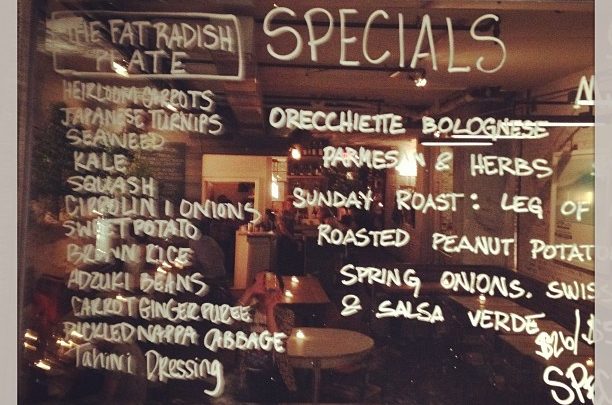 THE FAT RADISH
PLATE
HEIRLOOM CARROTS
JAPANESE TURNIPS
SEAWEED
KALE
SQUASH
CIPPOLINI ONIONS
SWEET POTATO
BROWN RICE
ADZUKI BEANS
CARROT GINGER PUREE
PICKLED NAPPA CABBAGE
Tahini Dressing
SPECIALS
ORECCHIETTE BOLOGNESE
PARMESAN & HERBS
SUNDAY ROAST: LEG OF
ROASTED PEANUT POTAT
SPRING ONIONS, SWIS
& SALSA VERDE
$26/$
SPE